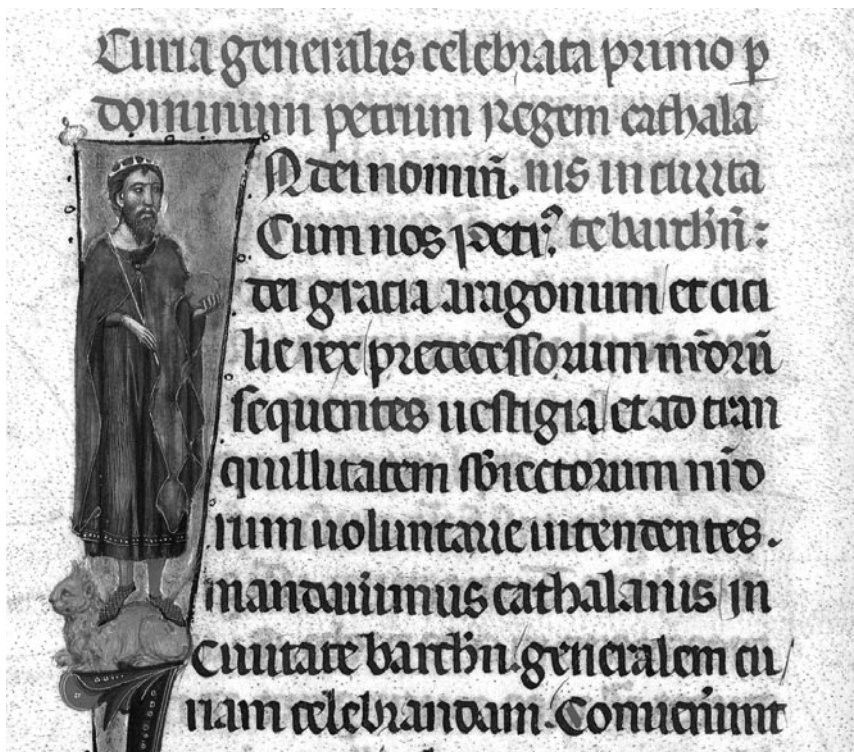 Curia generalis celebrata primo p̱
dominum petrum Regem cathala
N dei nomiñ. nis in ciuita
Cum nos petr⁹ te barchn̄:
dei gracia aragonum / et cici
lie rex / predecessorum nr̄orū
sequentes uestigia / et ad tran
quillitatem sb̄iectorum nr̄o
rum uoluntarie intendentes.
mandauimus cathalanis / in
Ciuitate barchn̄. generalem cu/
riam celebrandam. Conuenerunt